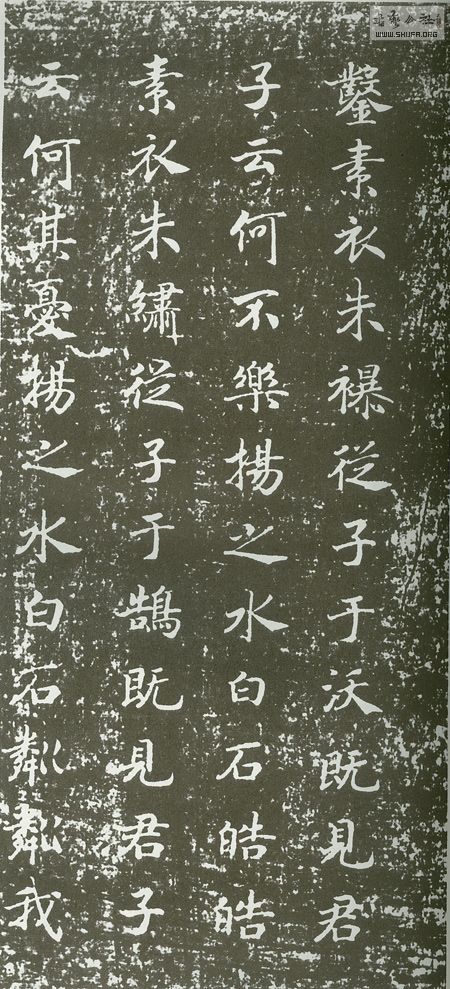 鑿素衣朱襮從子于沃既見君
子云何不樂揚之水白石皓皓
素衣朱繡從子于鵠既見君子
云何其憂揚之水白石粼粼我
WWW.SHUFA.ORG